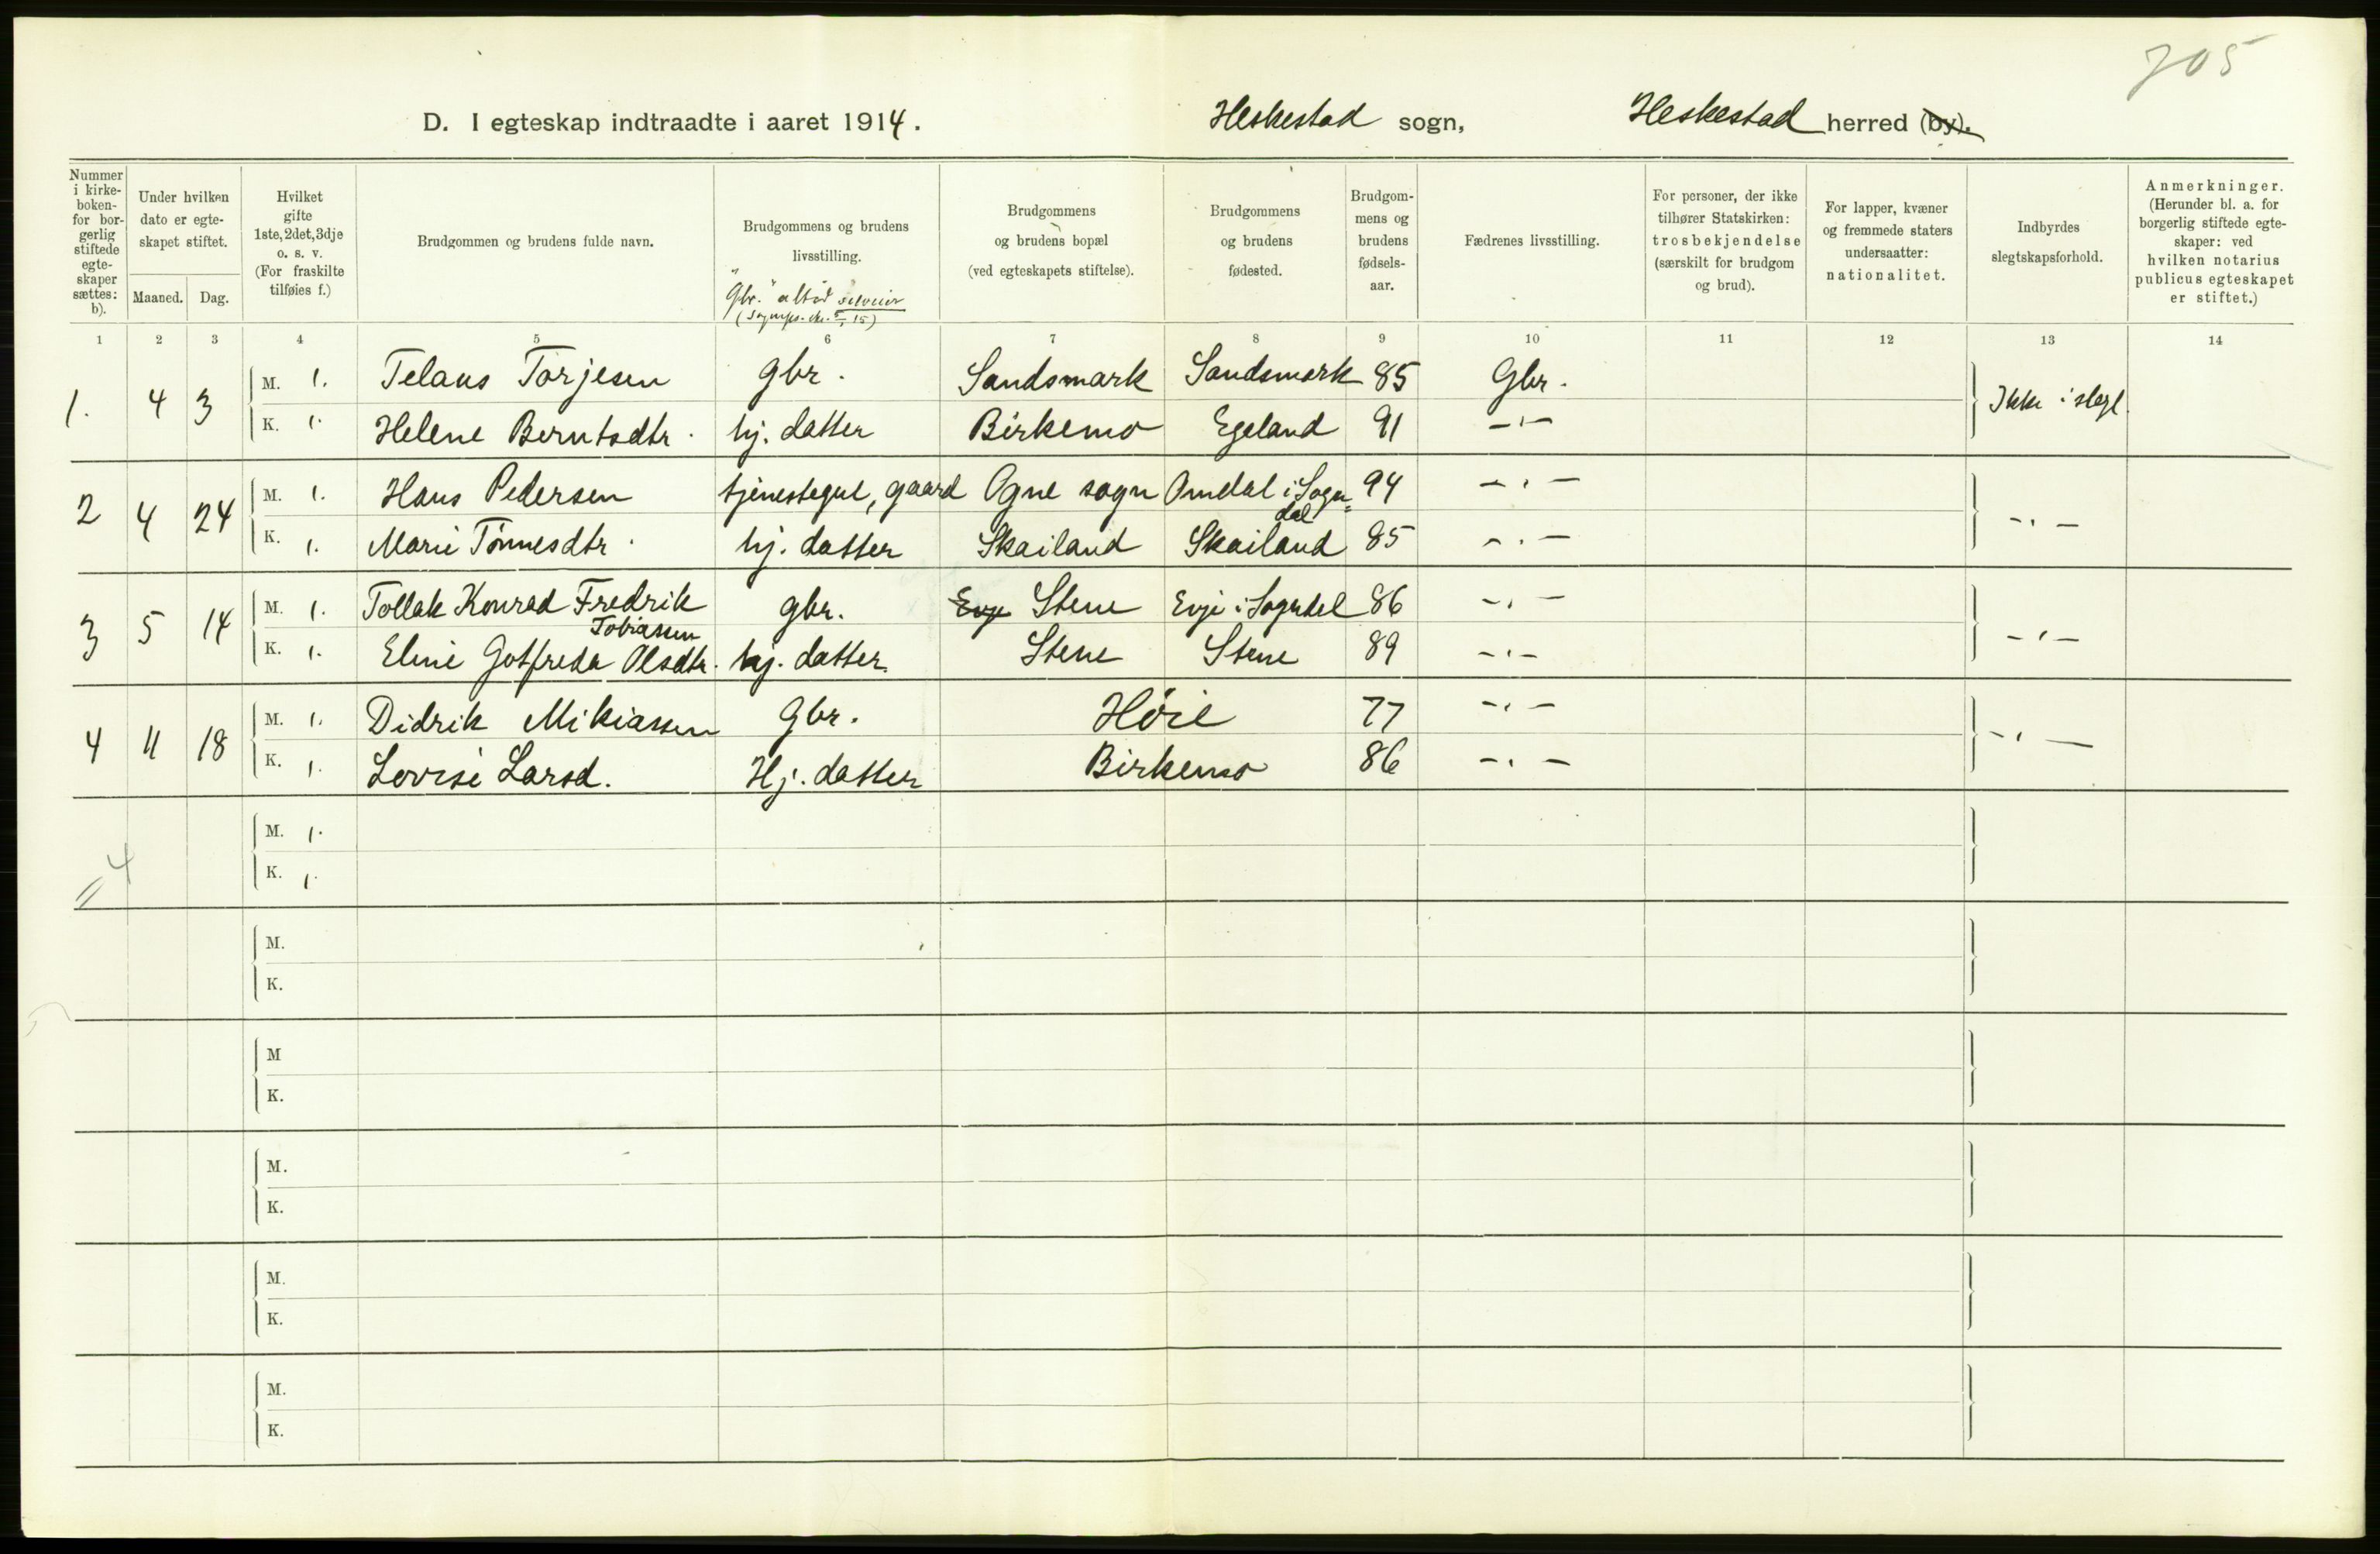 705
D. I egteskap indtraadte i aaret 1914.   Heskestad sogn,   Heskestad herred (by).
Nummer i kirkeboken- for borgerlig stiftede egteskaper sættes: b).
Under hvilken dato er egteskapet stiftet.
Maaned. Dag.
Hvilket gifte 1ste, 2det, 3dje o. s. v. (For fraskilte tilføies f.)
Brudgommen og brudens fulde navn.
Brudgommens og brudens livsstilling.
"Gbr." altid selveier
Brudgommens og brudens bopæl (ved egteskapets stiftelse).
Brudgommens og brudens fødested.
Brudgommens og brudens fødselsaar.
Fædrenes livsstilling.
For personer, der ikke tilhører Statskirken: trosbekjendelse (særskilt for brudgom og brud).
For lapper, kvæner og fremmede staters undersaatter: nationalitet.
Indbyrdes slegtskapsforhold.
Anmerkninger. (Herunder bl. a. for borgerlig stiftede egteskaper: ved hvilken notarius publicus egteskapet er stiftet.)
1 2 3 4 5 6 7 8 9 10 11 12 13 14
1. 4 3 M. 1. Telaus Torjesen gbr. Sandsmark Sandsmark 85 Gbr. Ikke i slegt.
K. 1. Helene Berntsdtr. hj. datter Birkemo Egeland 91 -"-
2 4 24 M. 1. Hans Pedersen tjenestegut, gaard Ogne sogn Omdal i Sogndal 94 -"- -"-
K. 1. Marie Tønnesdtr. hj. datter Skailand Skailand 85 -"-
3 5 14 M. 1. Tollak Konrad Fredrik Tobiassen gbr. Evje Stene Evje i Sogndal 86 -"- -"-
K. 1. Eline Gotfreda Olsdtr. hj. datter Stene Stene 89 -"-
4 11 18 M. 1. Didrik Mikiassen Gbr. Høie 77 -"- -"-
K. 1. Lovise Larsd. Hj. datter Birkemo 86 -"-
M. 1.
4
K. 1.
M.
K.
M
K.
M.
K.
M.
K.
M.
K.